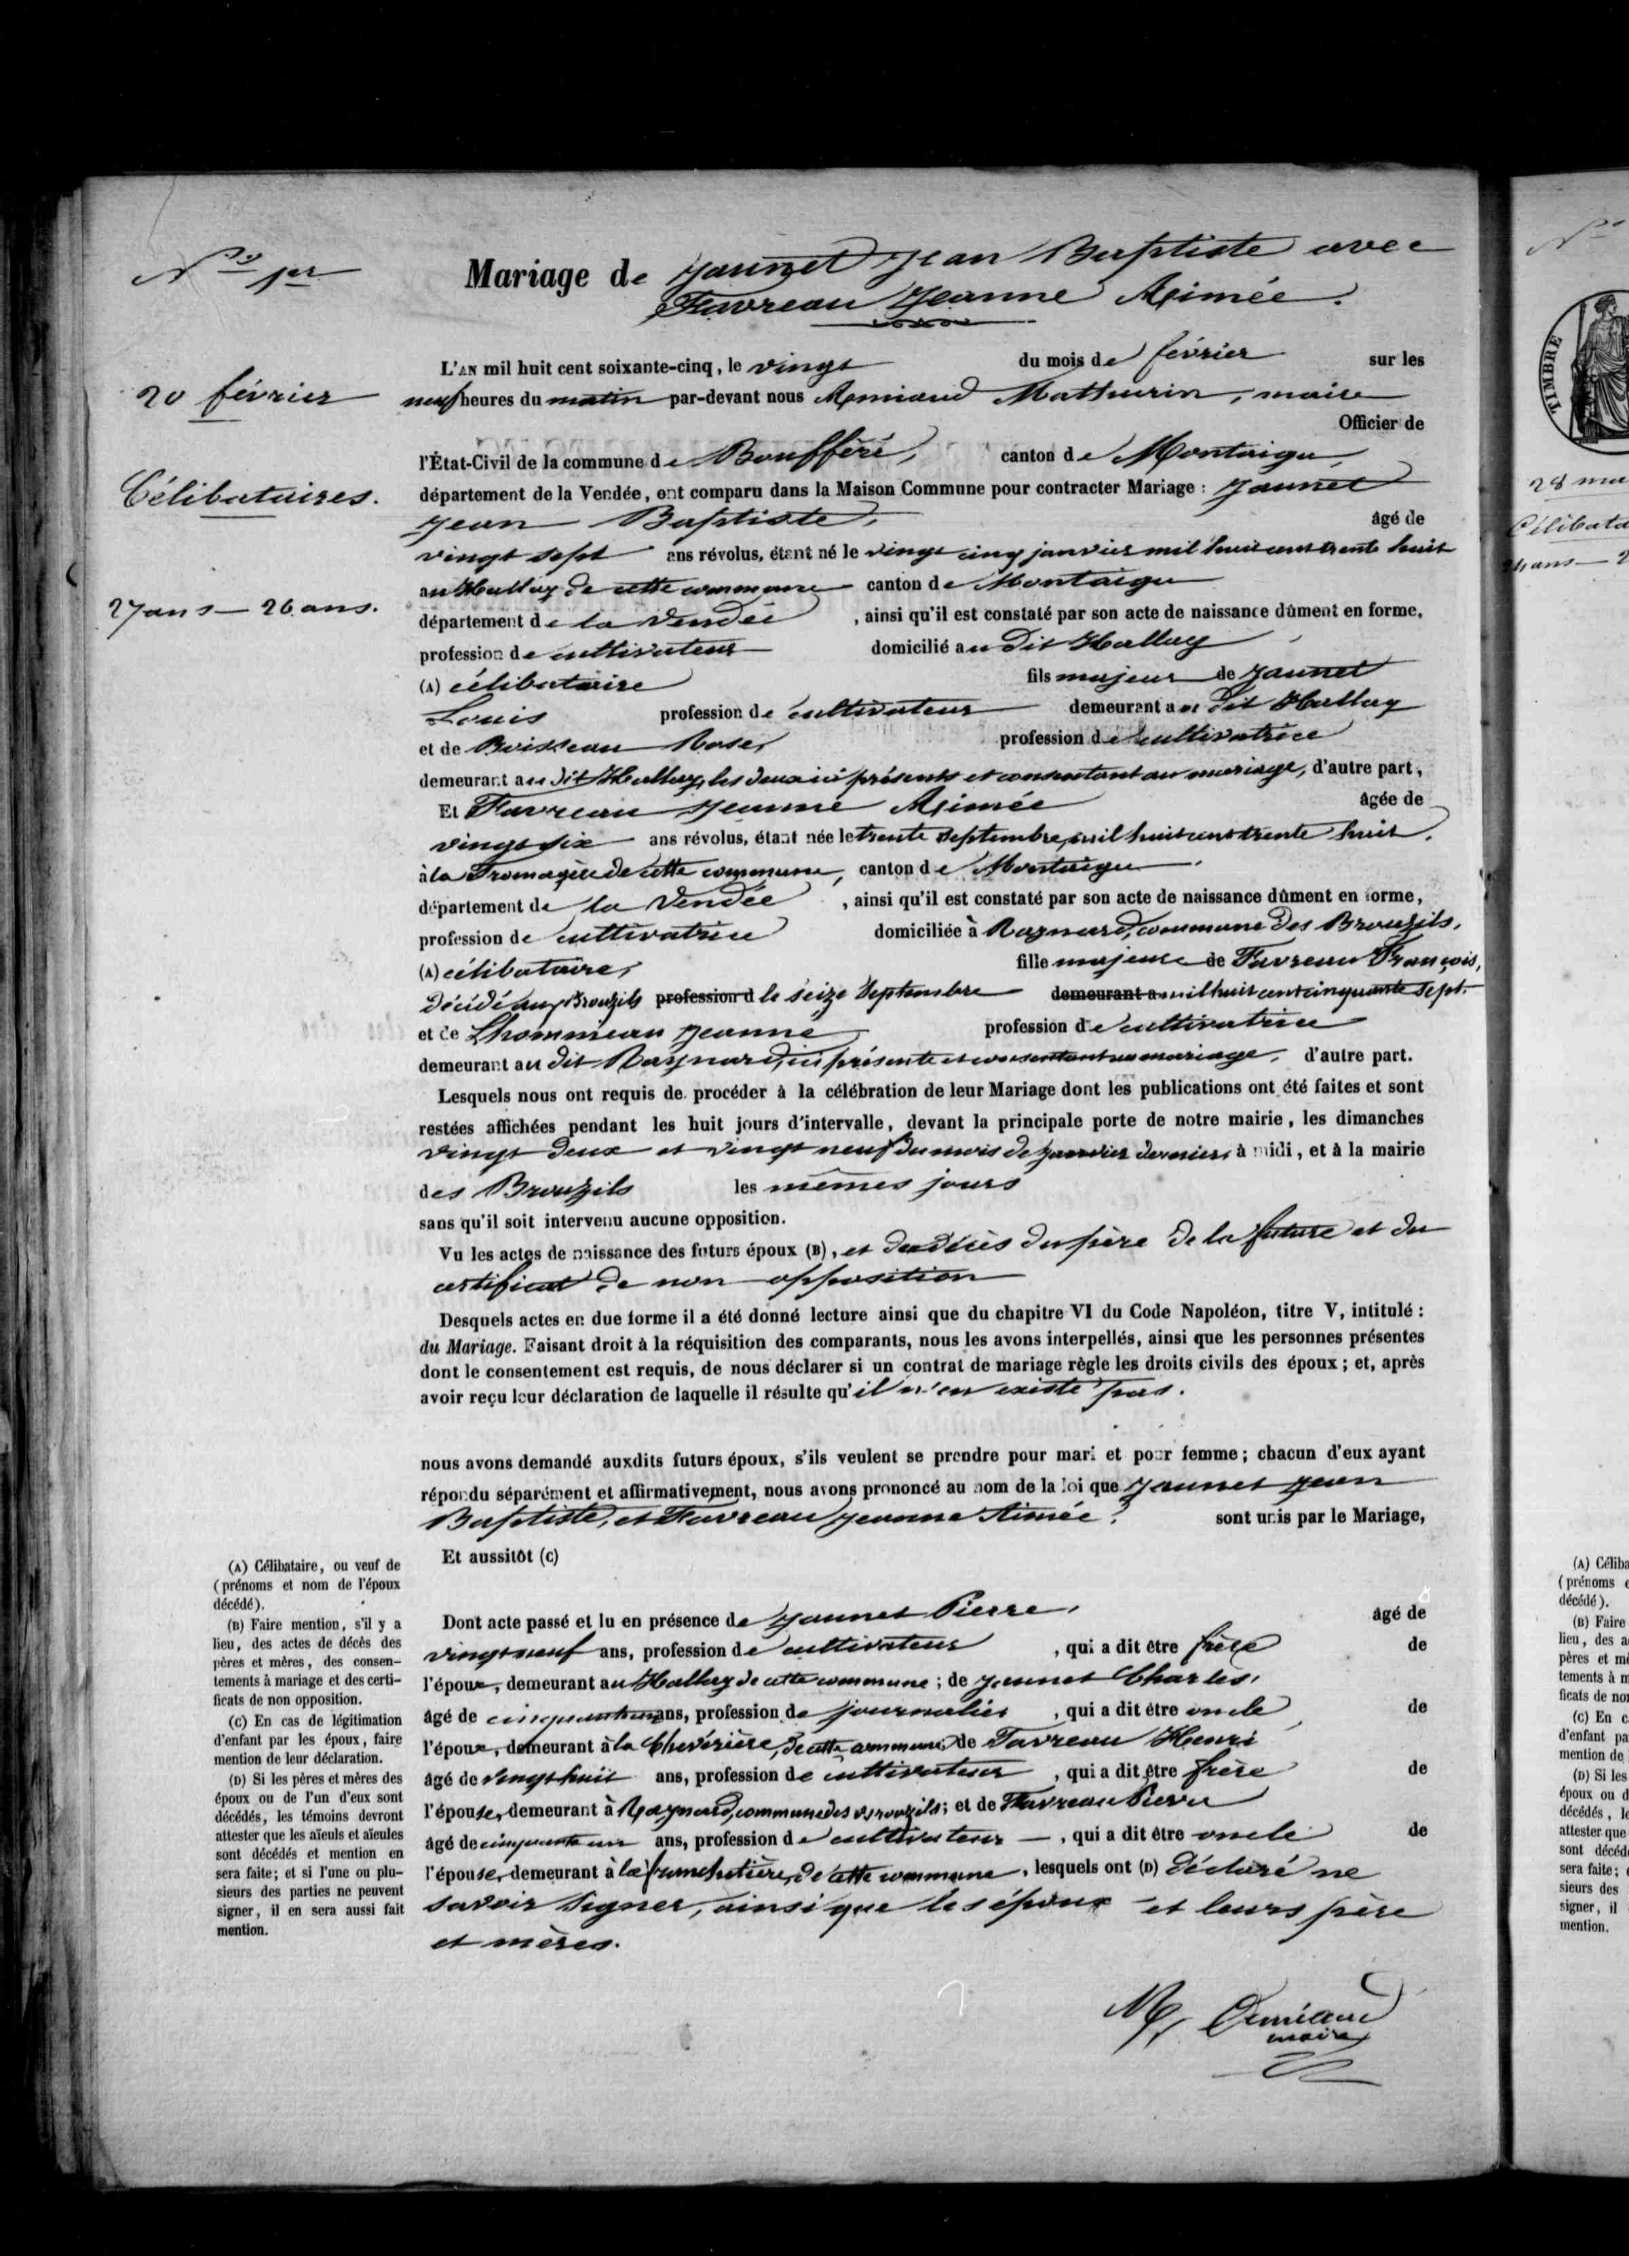 N° 1er
Mariage de Jaunet Jean Baptiste avec
Favreau Jeanne Aimée.
20 février
Célibataires.
27 ans — 26 ans.
L'AN mil huit cent soixante-cinq, le vingt du mois de février sur les
neuf heures du matin par-devant nous Amiaud Mathurin, maire
Officier de
l'État-Civil de la commune de Boufféré, canton de Montaigu,
département de la Vendée, ont comparu dans la Maison Commune pour contracter Mariage : Jaunet
Jean Baptiste, âgé de
vingt sept ans révolus, étant né le vingt cinq janvier mil huit cent trente huit
au Hallay de cette commune canton de Montaigu
département de la Vendée , ainsi qu'il est constaté par son acte de naissance dûment en forme,
profession de cultivateur domicilié au dit Hallay
(A) célibataire fils majeur de Jaunet
Louis profession de cultivateur demeurant au dit Hallay
et de Boisseau Rose, profession de cultivatrice
demeurant au dit Hallay, les deux ici présents et consentant au mariage, d'autre part,
Et Favreau Jeanne Aimée âgée de
vingt six ans révolus, étant née le trente septembre, mil huit cent trente huit,
à la Fromagère de cette commune, canton de Montaigu
département de la Vendée , ainsi qu'il est constaté par son acte de naissance dûment en forme,
profession de cultivatrice domiciliée à Raynard, commune des Brouzils,
(A) célibataire, fille majeure de Favreau François,
décédé aux Brouzils profession d le seize septembre demeurant a mil huit cent cinquante sept.
et de Lhommeau Jeanne profession de cultivatrice
demeurant au dit Raynard, ici présente et consentant au mariage, d'autre part.
Lesquels nous ont requis de procéder à la célébration de leur Mariage dont les publications ont été faites et sont
restées affichées pendant les huit jours d'intervalle, devant la principale porte de notre mairie, les dimanches
vingt deux et vingt neuf du mois de janvier dernier, à midi, et à la mairie
des Brouzils les mêmes jours
sans qu'il soit intervenu aucune opposition.
Vu les actes de naissance des futurs époux (B), et de décès du père de la future et du
certificat de non opposition
Desquels actes en due forme il a été donné lecture ainsi que du chapitre VI du Code Napoléon, titre V, intitulé :
du Mariage. Faisant droit à la réquisition des comparants, nous les avons interpellés, ainsi que les personnes présentes
dont le consentement est requis, de nous déclarer si un contrat de mariage règle les droits civils des époux ; et, après
avoir reçu leur déclaration de laquelle il résulte qu'il n'en existe pas.
nous avons demandé auxdits futurs époux, s'ils veulent se prendre pour mari et pour femme ; chacun d'eux ayant
répondu séparément et affirmativement, nous avons prononcé au nom de la loi que Jaunet Jean
Baptiste, et Favreau Jeanne Aimée, sont unis par le Mariage,
Et aussitôt (C)
Dont acte passé et lu en présence de Jaunet Pierre, âgé de
vingt neuf ans, profession de cultivateur , qui a dit être frère de
l'époux, demeurant au Hallay de cette commune ; de Jaunet Charles,
âgé de ans, profession de journalier , qui a dit être oncle de
l'époux, demeurant à la Chevérière, de cette commune, de Favreau Henri
âgé de vingt huit ans, profession de cultivateur , qui a dit être frère de
l'épouse, demeurant à Raynard, commune des Brouzils ; et de Favreau Pierre
âgé de cinquante un ans, profession de cultivateur — , qui a dit être oncle de
l'épouse, demeurant à la de cette commune , lesquels ont (D) déclaré ne
savoir signer, ainsi que les époux et leurs père
et mères.
M, Amiaud
maire
(A) Célibataire, ou veuf de
(prénoms et nom de l'époux
décédé).
(B) Faire mention, s'il y a
lieu, des actes de décès des
pères et mères, des consen-
tements à mariage et des certi-
ficats de non opposition.
(C) En cas de légitimation
d'enfant par les époux, faire
mention de leur déclaration.
(D) Si les pères et mères des
époux ou de l'un d'eux sont
décédés, les témoins devront
attester que les aïeuls et aïeules
sont décédés et mention en
sera faite ; et si l'une ou plu-
sieurs des parties ne peuvent
signer, il en sera aussi fait
mention.
N°
TIMBRE
28 ma
Célibata
24 ans —
(A) Céliba
(prénoms e
décédé).
(B) Faire
lieu, des a
pères et mè
tements à m
ficats de no
(C) En c
d'enfant pa
mention de
(D) Si les
époux ou d
décédés, l
attester que
sont décéd
sera faite ;
sieurs des
signer, il
mention.